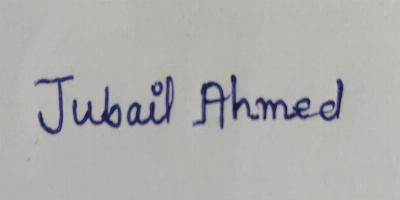 Jubail Ahmed